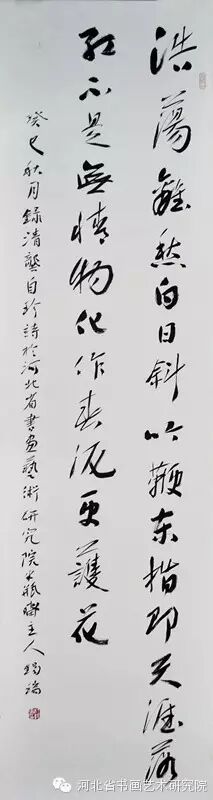 浩蕩離愁白日斜吟鞭东指即天涯落
紅不是無情物化作春泥更護花
癸巳秋月録清龔自珍詩於河北省書畫藝術研究院
河北省书画艺术研究院